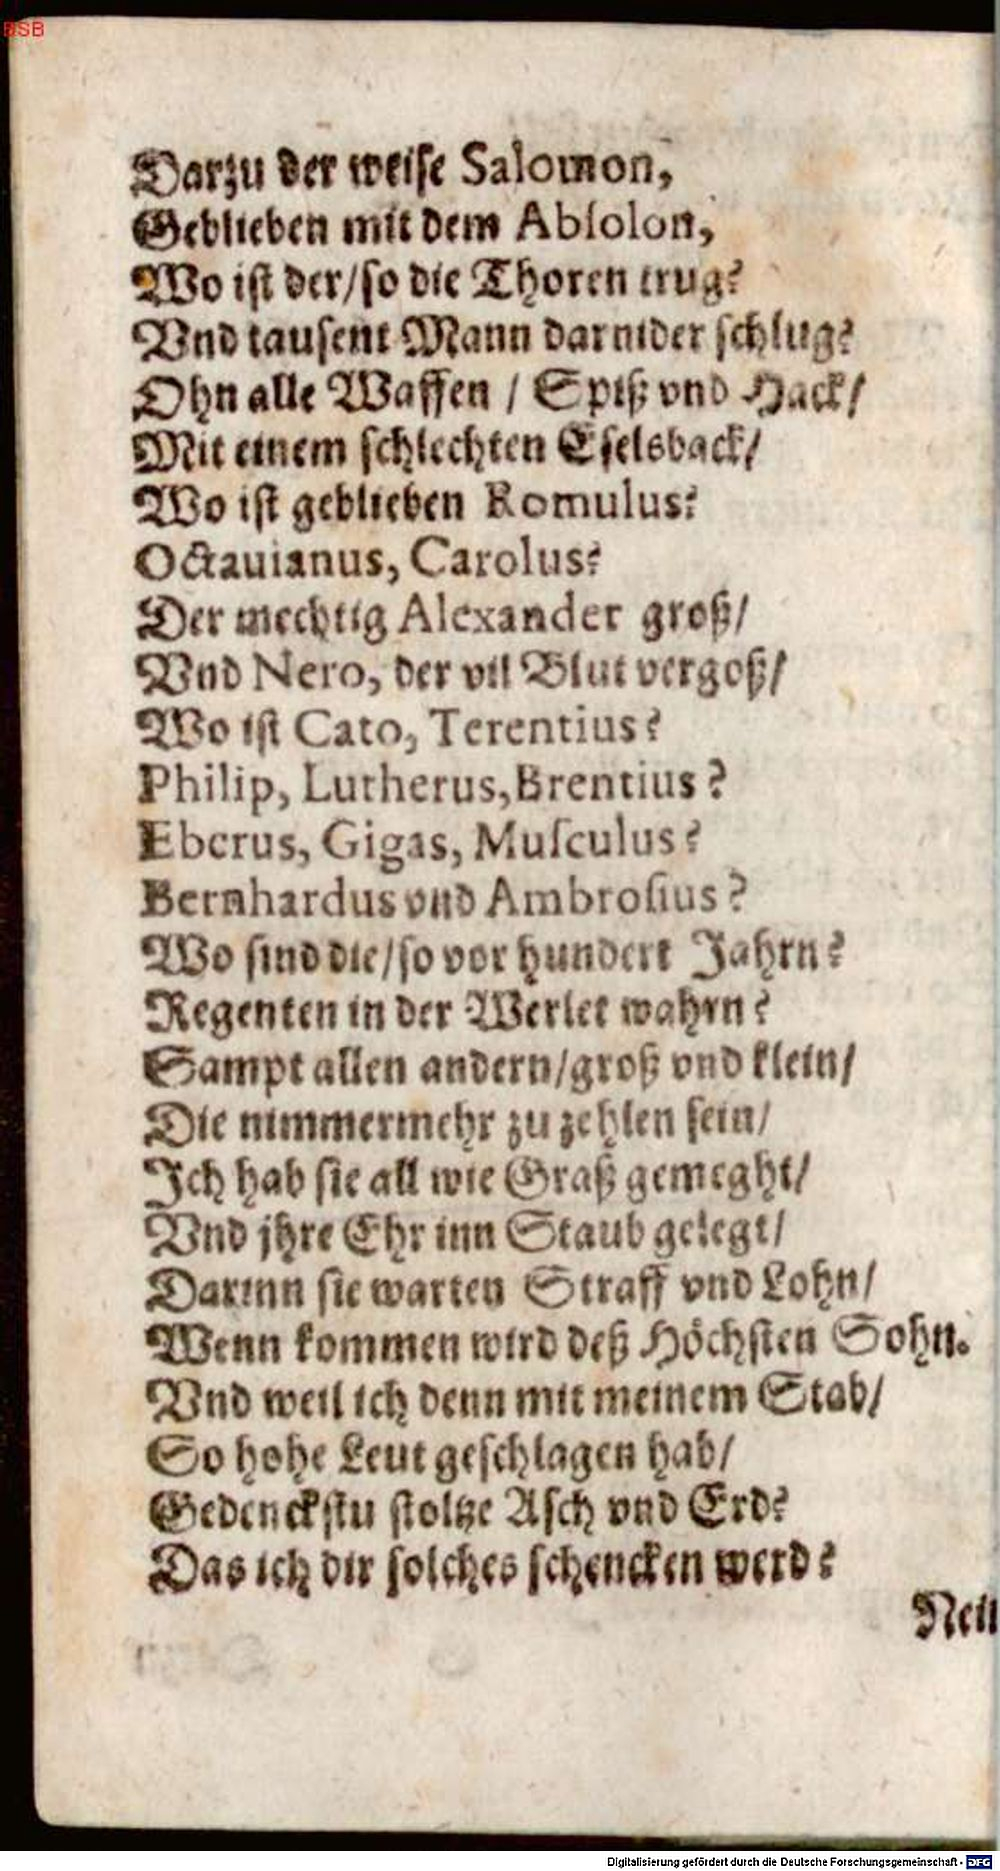 BSB
Darzu der weise Salomon,
Geblieben mit dem Abſolon,
Wo iſt der/ſo die Thoren trug?
Vnd tauſent Mann darnider ſchlug?
Ohn alle Waffen / Spiß vnd Hack/
Mit einem ſchlechten Eſelsback/
Wo iſt geblieben Romulus?
Octauianus, Carolus?
Der mechtig Alexander groß/
Vnd Nero, der vil Blut vergoß/
Wo iſt Cato, Terentius?
Philip, Lutherus, Brentius?
Eberus, Gigas, Muſculus?
Bernhardus vnd Ambroſius?
Wo ſind die/ſo vor hundert Jahrn?
Regenten in der Werlet wahrn?
Sampt allen andern/groß vnd klein/
Die nimmermehr zu zehlen ſein/
Ich hab ſie all wie Graß gemeght/
Vnd jhre Ehr inn Staub gelegt/
Darinn ſie warten Straff vnd Lohn/
Wenn kommen wird deß Höchſten Sohn.
Vnd weil ich denn mit meinem Stab/
So hohe Leut geſchlagen hab/
Gedenckſtu ſtoltze Aſch vnd Erd?
Das ich dir ſolches ſchencken werd?
Digitalisierung gefördert durch die Deutsche Forschungsgemeinschaft - DFG